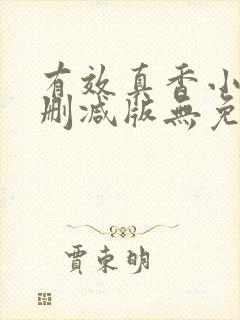 有效真香小
删减版無免
賈東明